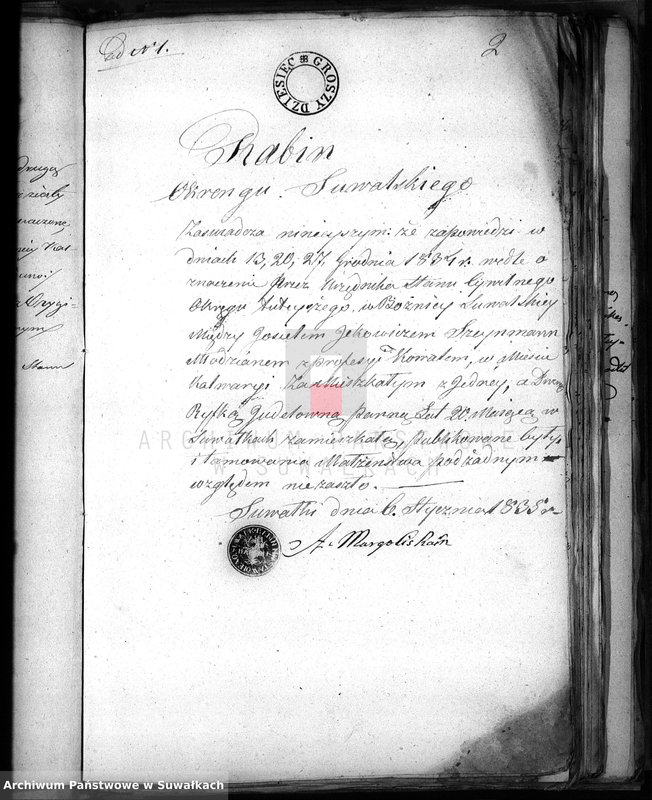 ad N 1.
2
DZIESIĘĆ GROSZY
Rabin
Okrengu Suwalskiego
Zaświadcza ninieyszym: że zapowiedzi w
dniach 13, 20, 27 Grudnia 1834 r. wedle o
znaczenia przez Urzędnika Stanu Cywilnego
Okręgu tuteyszego, w Bożnicy Suwalskiey
Między Joselem Jckowiczem Szeynmann
Młodzianem z professyi Kowalem, w Mieście
Kalwaryi Zamieszkałym z Jedney, a Drugą
Ryfką Judelowną panną Lat 20 Maiącą w
Suwałkach zamieszkałą, publikowane były,
i tamowania Małżeństwa pod żadnym
względem nie zaszło.
Suwałki dnia 6. Stycznia 1835 r.
A. Margolis Rabin
ARCHIWUM PAŃSTWOWE
W SUWAŁKACH
Archiwum Państwowe w Suwałkach